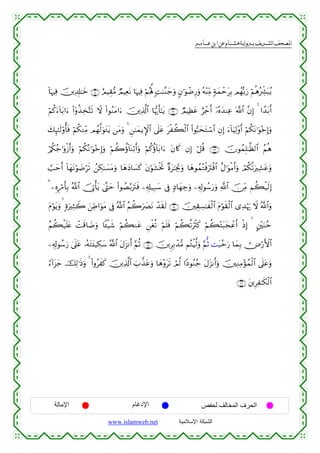 المصحف الشريف برواية هشام عن ابن عامر
يُبَشِّرُهُمْ رَبُّهُم بِرَحْمَةٍ مِّنْهُ وَرِضْوَانٍ وَجَنَّاتٍ لَّهُمْ فِيهَا نَعِيمٌ مُّقِيمٌ ۝ خَالِدِينَ فِيهَا
أَبَدًا ۚ إِنَّ اللَّهَ عِندَهُ أَجْرٌ عَظِيمٌ ۝ يَا أَيُّهَا الَّذِينَ آمَنُوا لَا تَتَّخِذُوا آبَاءَكُمْ
وَإِخْوَانَكُمْ أَوْلِيَاءَ إِنِ اسْتَحَبُّوا الْكُفْرَ عَلَى الْإِيمَانِ ۚ وَمَن يَتَوَلَّهُم مِّنكُمْ فَأُولَٰئِكَ
هُمُ الظَّالِمُونَ ۝ قُلْ إِن كَانَ آبَاؤُكُمْ وَأَبْنَاؤُكُمْ وَإِخْوَانُكُمْ وَأَزْوَاجُكُمْ
وَعَشِيرَتُكُمْ وَأَمْوَالٌ اقْتَرَفْتُمُوهَا وَتِجَارَةٌ تَخْشَوْنَ كَسَادَهَا وَمَسَاكِنُ تَرْضَوْنَهَا أَحَبَّ
إِلَيْكُم مِّنَ اللَّهِ وَرَسُولِهِ وَجِهَادٍ فِي سَبِيلِهِ فَتَرَبَّصُوا حَتَّىٰ يَأْتِيَ اللَّهُ بِأَمْرِهِ ۗ
وَاللَّهُ لَا يَهْدِي الْقَوْمَ الْفَاسِقِينَ ۝ لَقَدْ نَصَرَكُمُ اللَّهُ فِي مَوَاطِنَ كَثِيرَةٍ ۙ وَيَوْمَ
حُنَيْنٍ ۙ إِذْ أَعْجَبَتْكُمْ كَثْرَتُكُمْ فَلَمْ تُغْنِ عَنكُمْ شَيْئًا وَضَاقَتْ عَلَيْكُمُ
الْأَرْضُ بِمَا رَحُبَت ثُّمَّ وَلَّيْتُم مُّدْبِرِينَ ۝ ثُمَّ أَنزَلَ اللَّهُ سَكِينَتَهُ عَلَىٰ رَسُولِهِ
وَعَلَى الْمُؤْمِنِينَ وَأَنزَلَ جُنُودًا لَّمْ تَرَوْهَا وَعَذَّبَ الَّذِينَ كَفَرُوا ۚ وَذَٰلِكَ جَزَاءُ
الْكَافِرِينَ ۝
الحرف المخالف لحفص الإدغام الإمالة
www.islamweb.net الشبكة الإسلامية